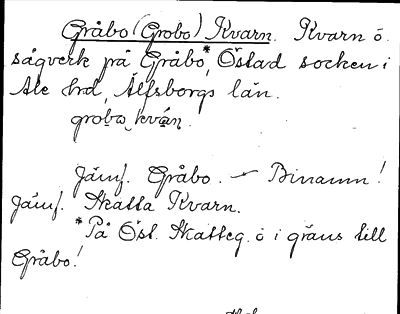 Gråbo (Grobo) Kvarn. Kvarn o.
sågverk på Gråbo*, Östad socken i
Ale hrd, Älfsborgs län.
grobo kván.
Jämf. Gråbo. – Binamn!
Jämf. Skatla Kvarn.
*På Öst. Skatteg. o i gräns till
Gråbo!